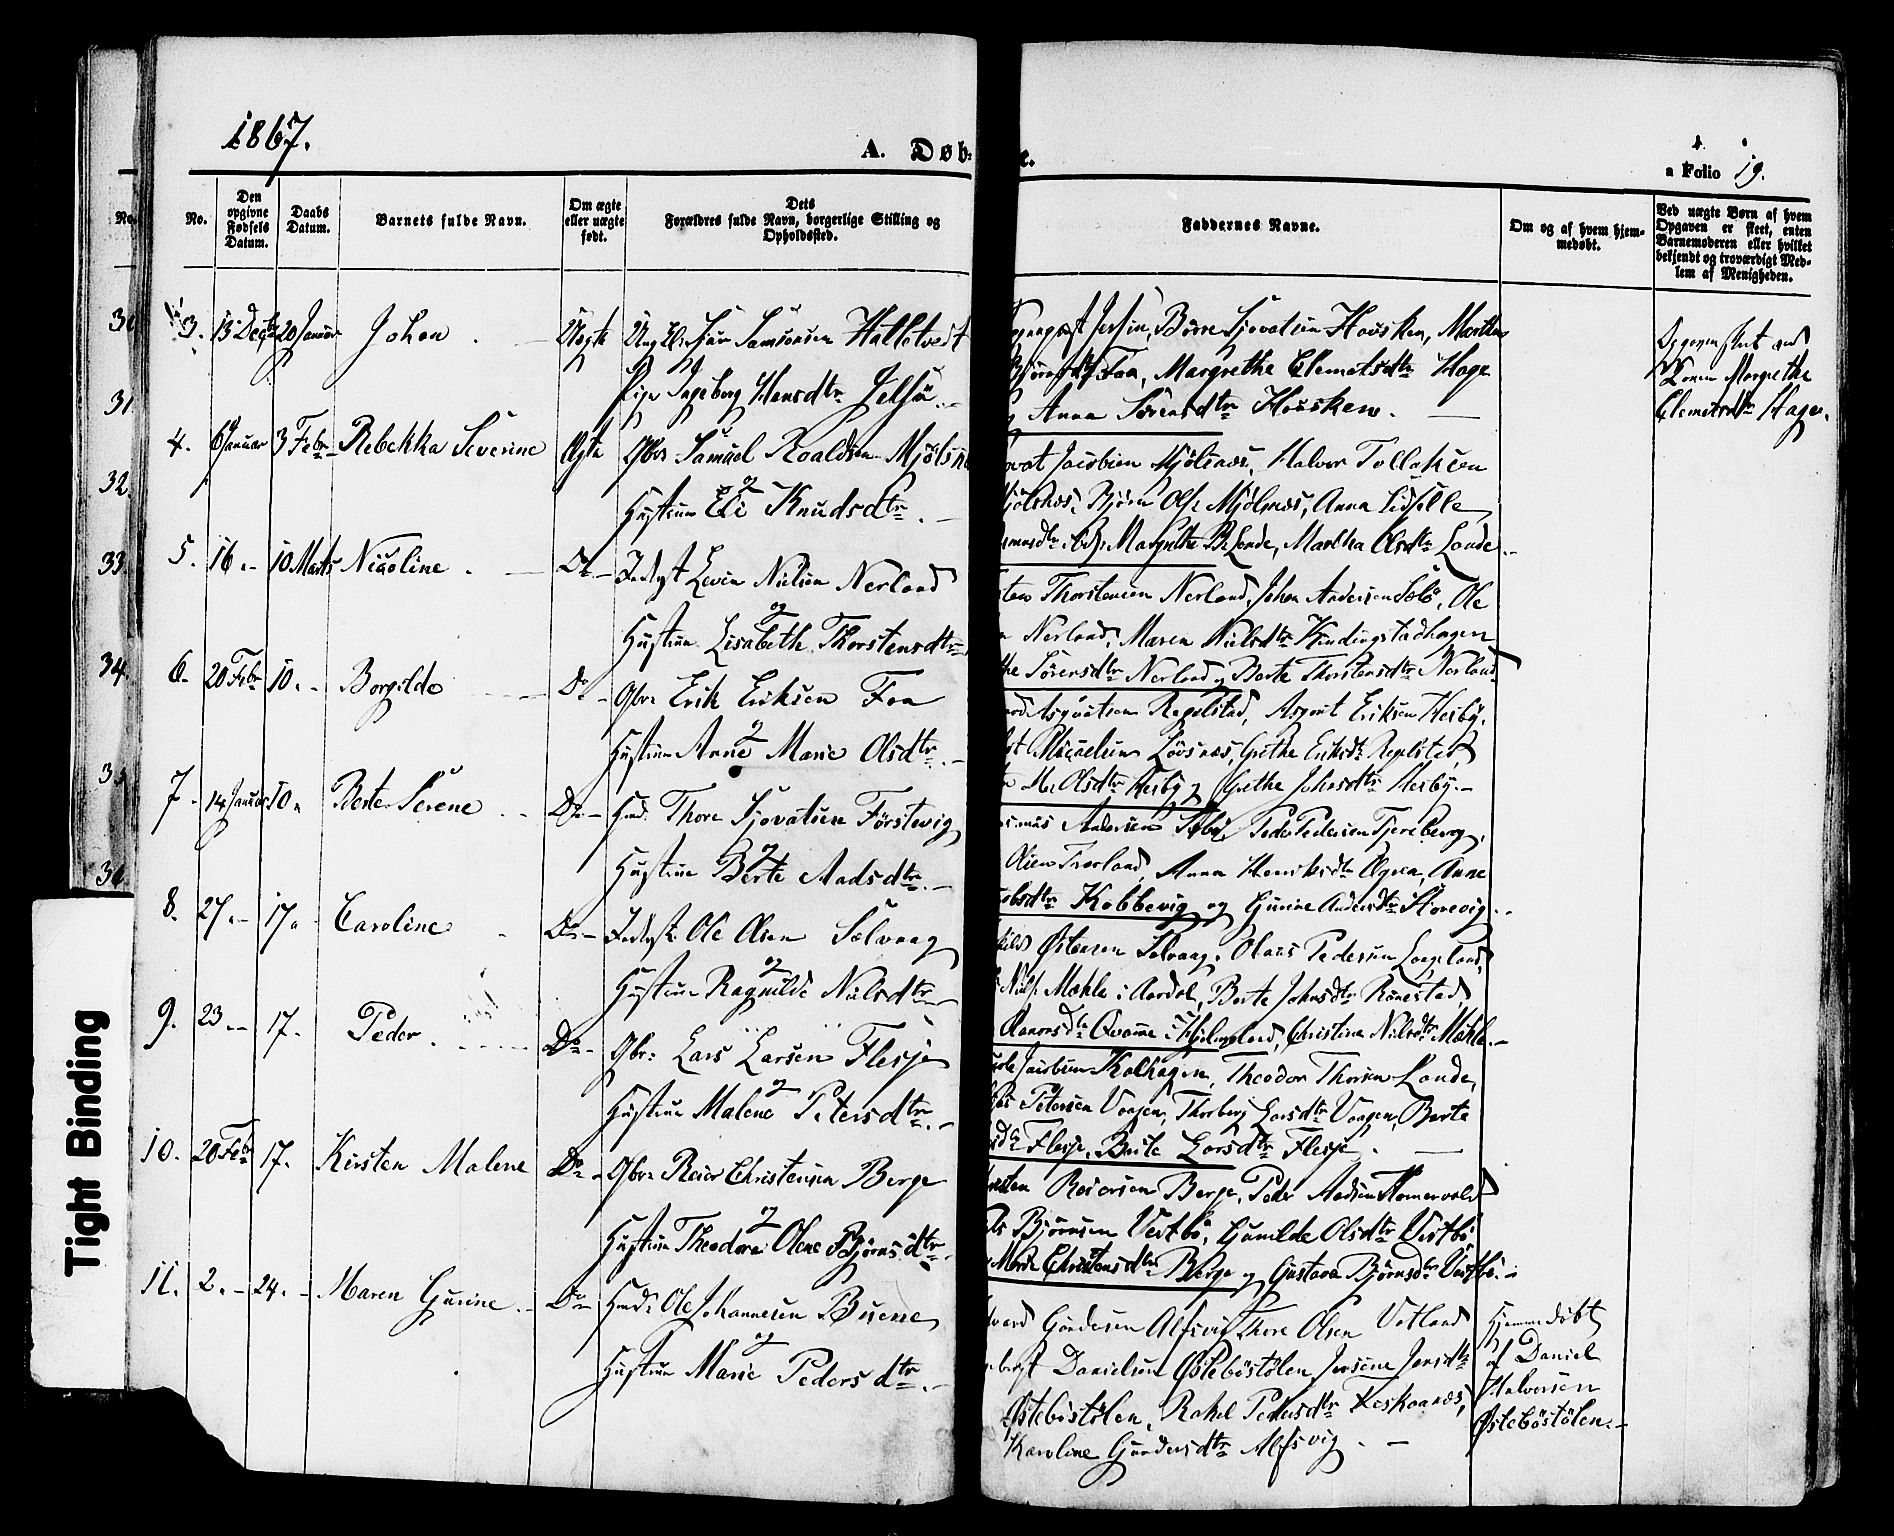 1867.
A. Døb-
e.
a Folio 19.
No.
No.
Den opgivne Fødsels Datum.
Daabs Datum.
Barnets fulde Navn.
Om ægte eller uægte født.
Dets Forældres fulde Navn, borgerlige Stilling og Opholdssted.
Faddernes Navne.
Om og af hvem hjemmedøbt.
Ved uægte Børn af hvem Opgaven er skeet, enten Barnemoderen eller hvilket bekjendt og troværdigt Medlem af Menigheden.
30
31
32.
33.
34.
35
36
3. 13 Decbr 20 Januar Johan Uægte Samsonsen Hallotvedt
Pige Ingeborg Hansdtr Jelsø
Børre Sjovatsen Housken, Martha
Faa, Margrethe Clematsdtr Hage
Anna Sørensdtr Housken.
Opgaven skeet ved
Konen Margrethe
Clematsdtr Hage.
4. 6 Januar 3 Febr Rebekka Severine Ægte Gbr Samuel Roaldsen Mjølsnæ
og
Hustrue Eli Knudsdtr.
Jacobsen Mjølsnæs, Halvor Tollaksen
Mjølsnæs, Bjørn Olss Mjølsnæs, Anna Sidselle
Margrethe Londe, Martha Olsdtr Londe.
5. 16 10 Marts Nicoline Do Levin Nielsen Nerland
og
Hustrue Lisabeth Thorstensdtr
Thorstensen Nerland, Johan Andersen Sæbø, Ole
Nerland, Maren Nielsdtr Hindingstadhagen
Sørensdtr Nerland og Berte Thorstensdtr Nerland
6. 20 Febr 10. Borgilde Do Gbr Erik Eriksen Faa
og
Hustrue Anne Marie Olsdtr.
Asgoutsen Regelstad, Asgout Eriksen Herby,
Michaelsen Løvsnæs, Grethe Eriksdtr Regelstad,
Olsdtr Herby og Grethe Johnsdtr Herby.
7. 14 Januar 10. Berte Serene Do Hmd. Thore Sjovatsen Førstevig
og
Hustrue Berte Aadsdtr.
Andersen Sæbø, Peder Pedersen Tjereberg,
Olsen Træland, Anna Henriksdtr Øgrea, Anne
Kobbevig og Gurine Andersdtr Storevig
8. 27. 17. Caroline Do Ole Olsen Sælvaag
og
Hustrue Ragnilde Nielsdtr
Østensen Selvaag, Olaus Pedersen Loageland,
Mæhle i Aardal, Berte Johnsdtr Rønestad
Aanonsdtr Qvamme i Hjelmeland, Christine Nielsdtr Mæhle.
9. 23 17. Peder. Do Gbr: Lars Larsen Flesje
og
Hustrue Malene Petersdtr.
Jacobsen Kolhagen, Theodor Thorsen Londe,
Petersen Vaagen, Thorberg Larsdtr Vaagen, Berte
Flesje, Berte Larsdtr Flesje.
10. 20 Febr 17. Kirsten Malene Do Gbr Reier Christensen Berge
og
Hustrue Theodora Olene Bjørnsdtr.
Reiersen Berge, Peder Aadsen Homervold
Bjørnsen Vestbø, Gunilde Olsdtr Vestbø
Christensdtr Berge og Gustava Bjørnsdtr Vestbø.
11. 2. 24. Maren Gurine. Do Hmd: Ole Johannesen Buene
og
Hustrue Marie Pedersdtr.
Gundersen Alfsvig, Thore Olsen Vatland
Danielsen Østebøstølen, Jersine Jensdtr
Østebøstølen, Rakel Pedersdtr
Karoline Gundersdtr Alfsvig.
Hjemmedøbt
af Daniel
Halvorsen
Østebøstølen.
Tight Binding